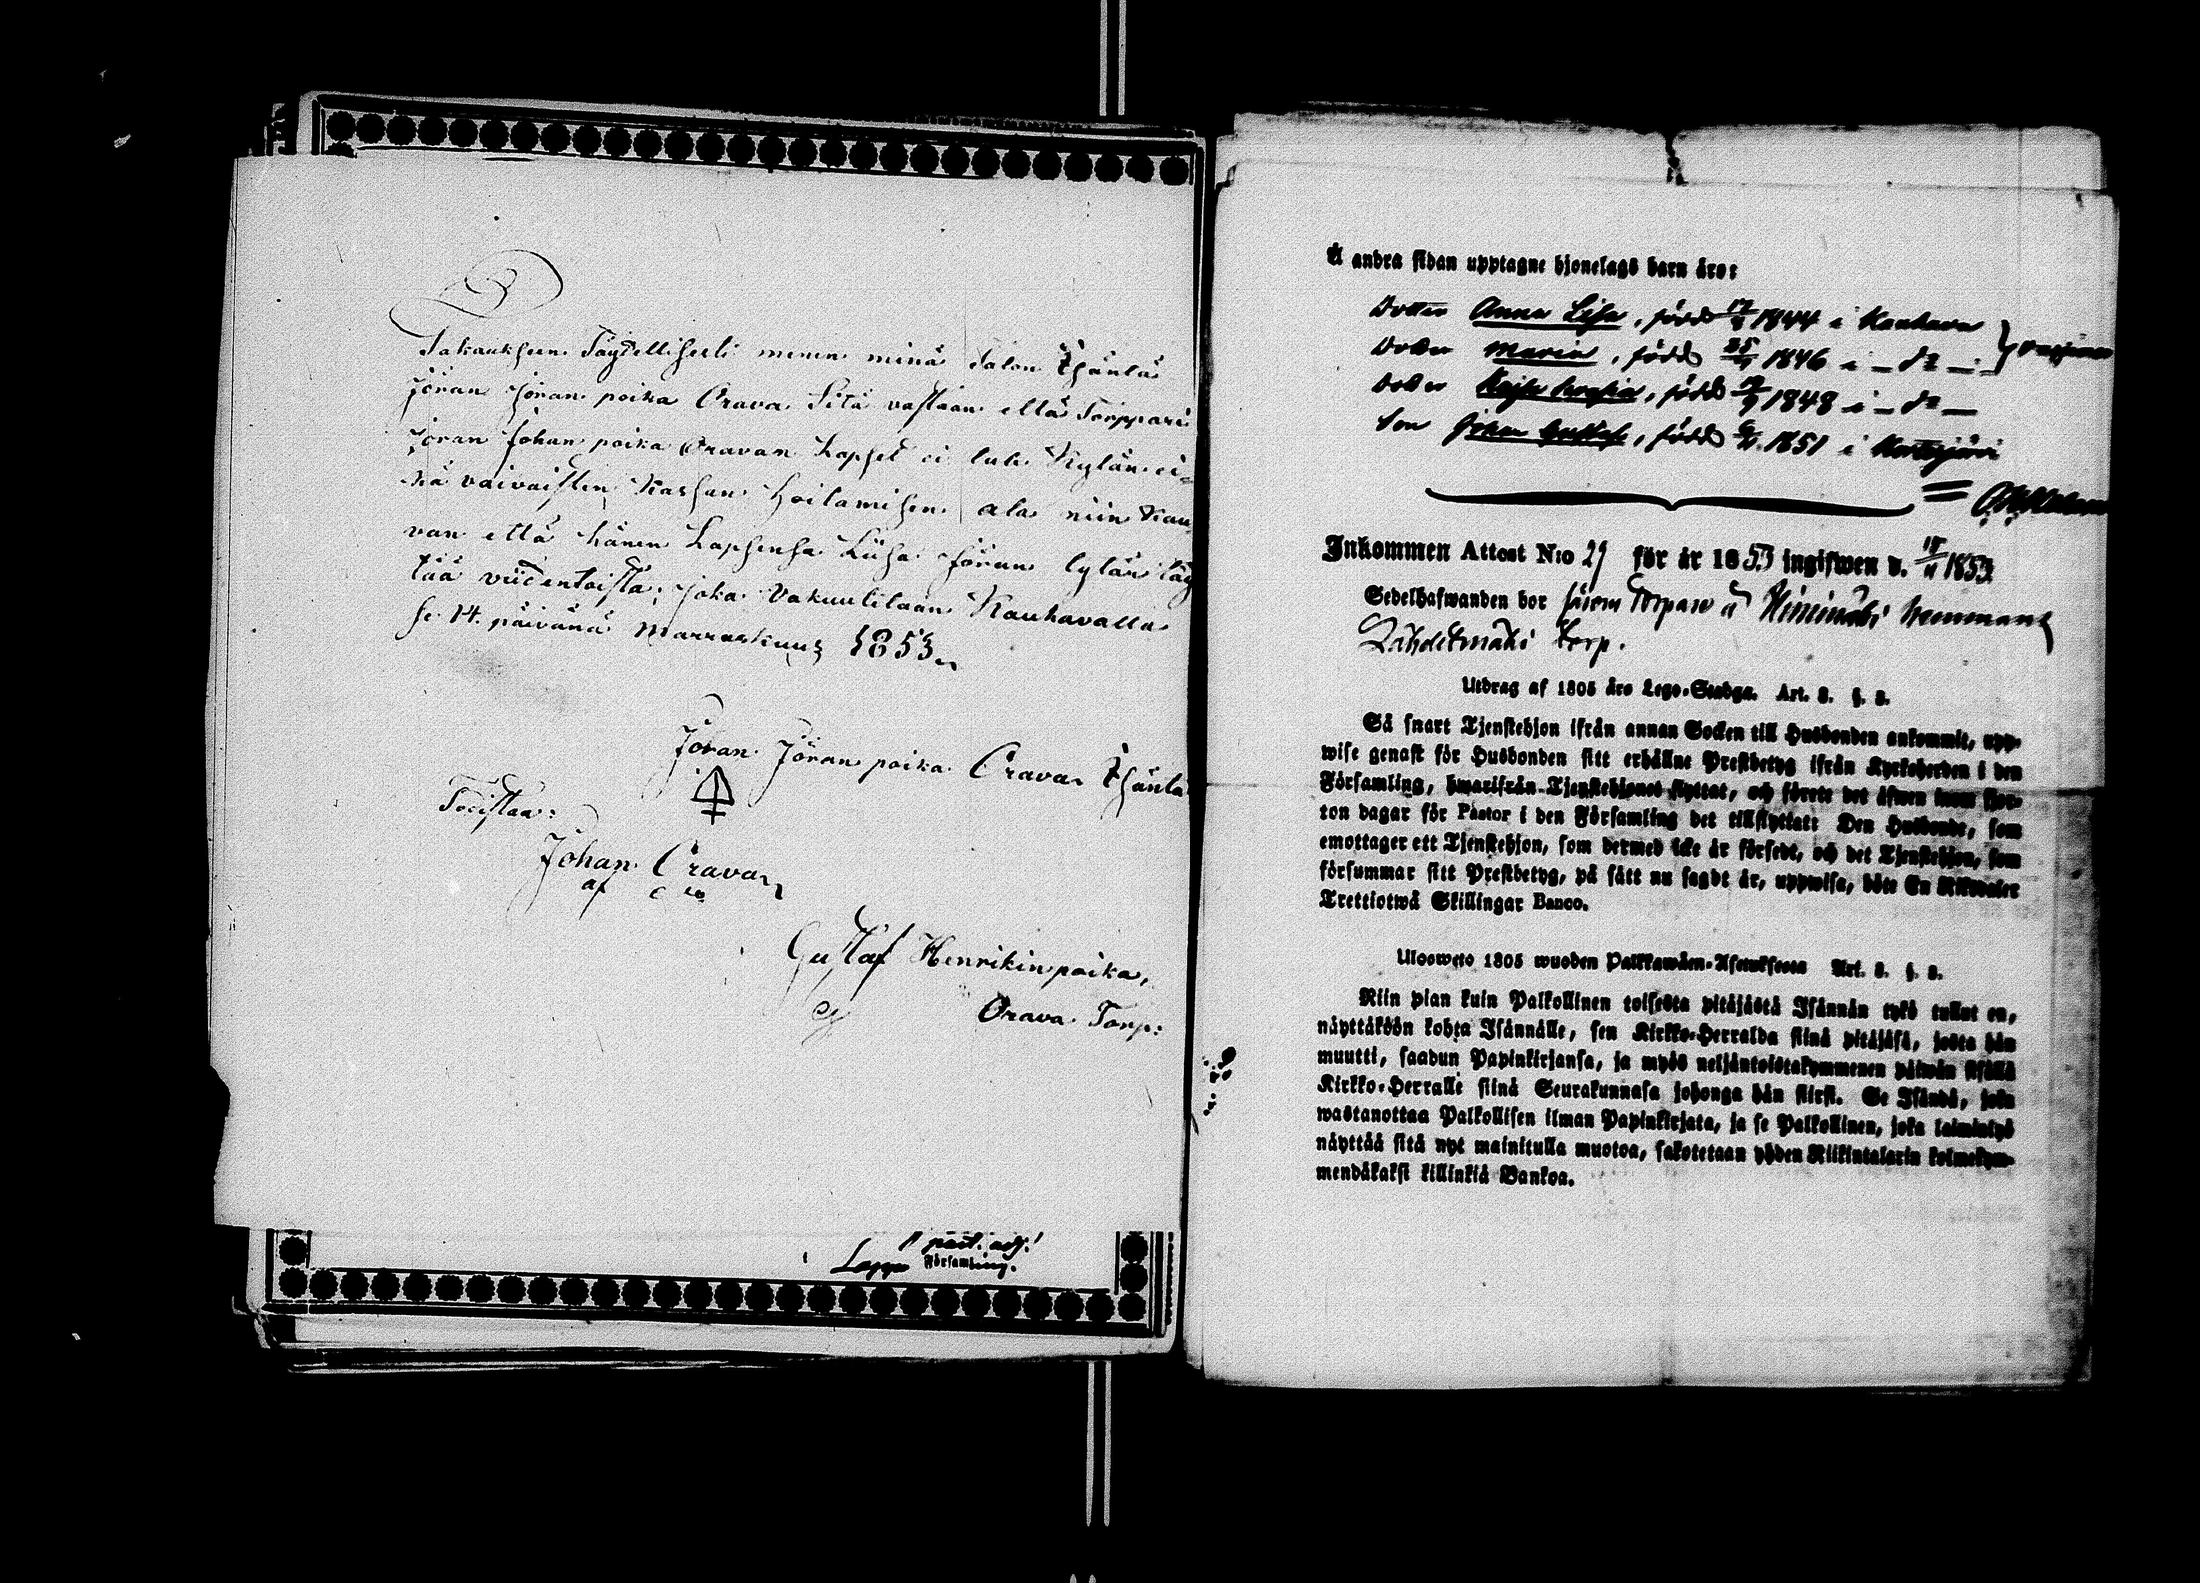 Takauksen Täydellisesti menen minä Talon Isäntä
Jöran Jöran poika Orava Sitä vastaan että Torppari
Jöran Johan poika Oravan Lapset ei tule Kylän ei-
kä vaivaisten Kassan Hoitamisen ala niin kau
van että hänen Lapsensa Liisa Jöran tytär täy
tää viidentoista; joka Vakuutitaan Kauhavalla
se 14. päivänä Marraskuus 1853.
Jöran Jöran poika Orava Isäntä
Todistaa:
Johan Orava
af
Gustaf Henrikin poika,
Orava Torp:
past. adj.
Lappo Församling.
Å andra sidan upptagne hjonelags barn äro:
Dotter Anna Lisa, född 1844 i Kauhava
Dotter Maria, född 1846 i — do —
Dotter Kajsa Sofia, född 1848 i — do —
Son Johan Gustaf, född 1851 i Kortesjärvi
Inkommen Attest N:o 29 för år 1853 ingifwen d. 18/11 1853
Sedelhafwanden bor såsom Torpare å hemmans
Lähdetmäki torp.
Utdrag af 1805 års Lego-Stadga. Art. 3. §. 3.
Så snart Tjenstehjon ifrån annan Socken till Husbonden ankommit, upp-
wise genast för Husbonden sitt erhållne Prestbetyg ifrån Kyrkoherden i den
Församling, hwarifrån Tjenstehjonet flyttat, och förete det äfwen inom fjor-
ton dagar för Pastor i den Församling det tillflyttat: Den Husbonde, som
emottager ett Tjenstehjon, som dermed icke är försedt, och det Tjenstehjon, som
försummar sitt Prestbetyg, på sätt nu sagdt är, uppwisa, böte En Riksdaler
Trettiotwå Skillingar Banco.
Ulosweto 1805 wuoden Palkkawäen-Asetuksesta Art. 3. §. 3.
Niin pian kuin Palkollinen toisesta pitäjästä Isännän tykö tullut on,
näyttäköön kohta Isännälle, sen Kirkko-Herralda siinä pitäjäsä, josta hän
muutti, saadun Papinkirjansa, ja myös neljäntoistakymmenen päiwän sisällä
Kirkko-Herralle siinä Seurakunnasa johonga hän siirsi. Se Isändä, joka
wastanottaa Palkollisen ilman Papinkirjata, ja se Palkollinen, joka laiminlyö
näyttää sitä nyt mainitulla muotoa, sakotetaan yhden Riikintalarin kolmekym-
mendäkaksi killinkiä Bankoa.